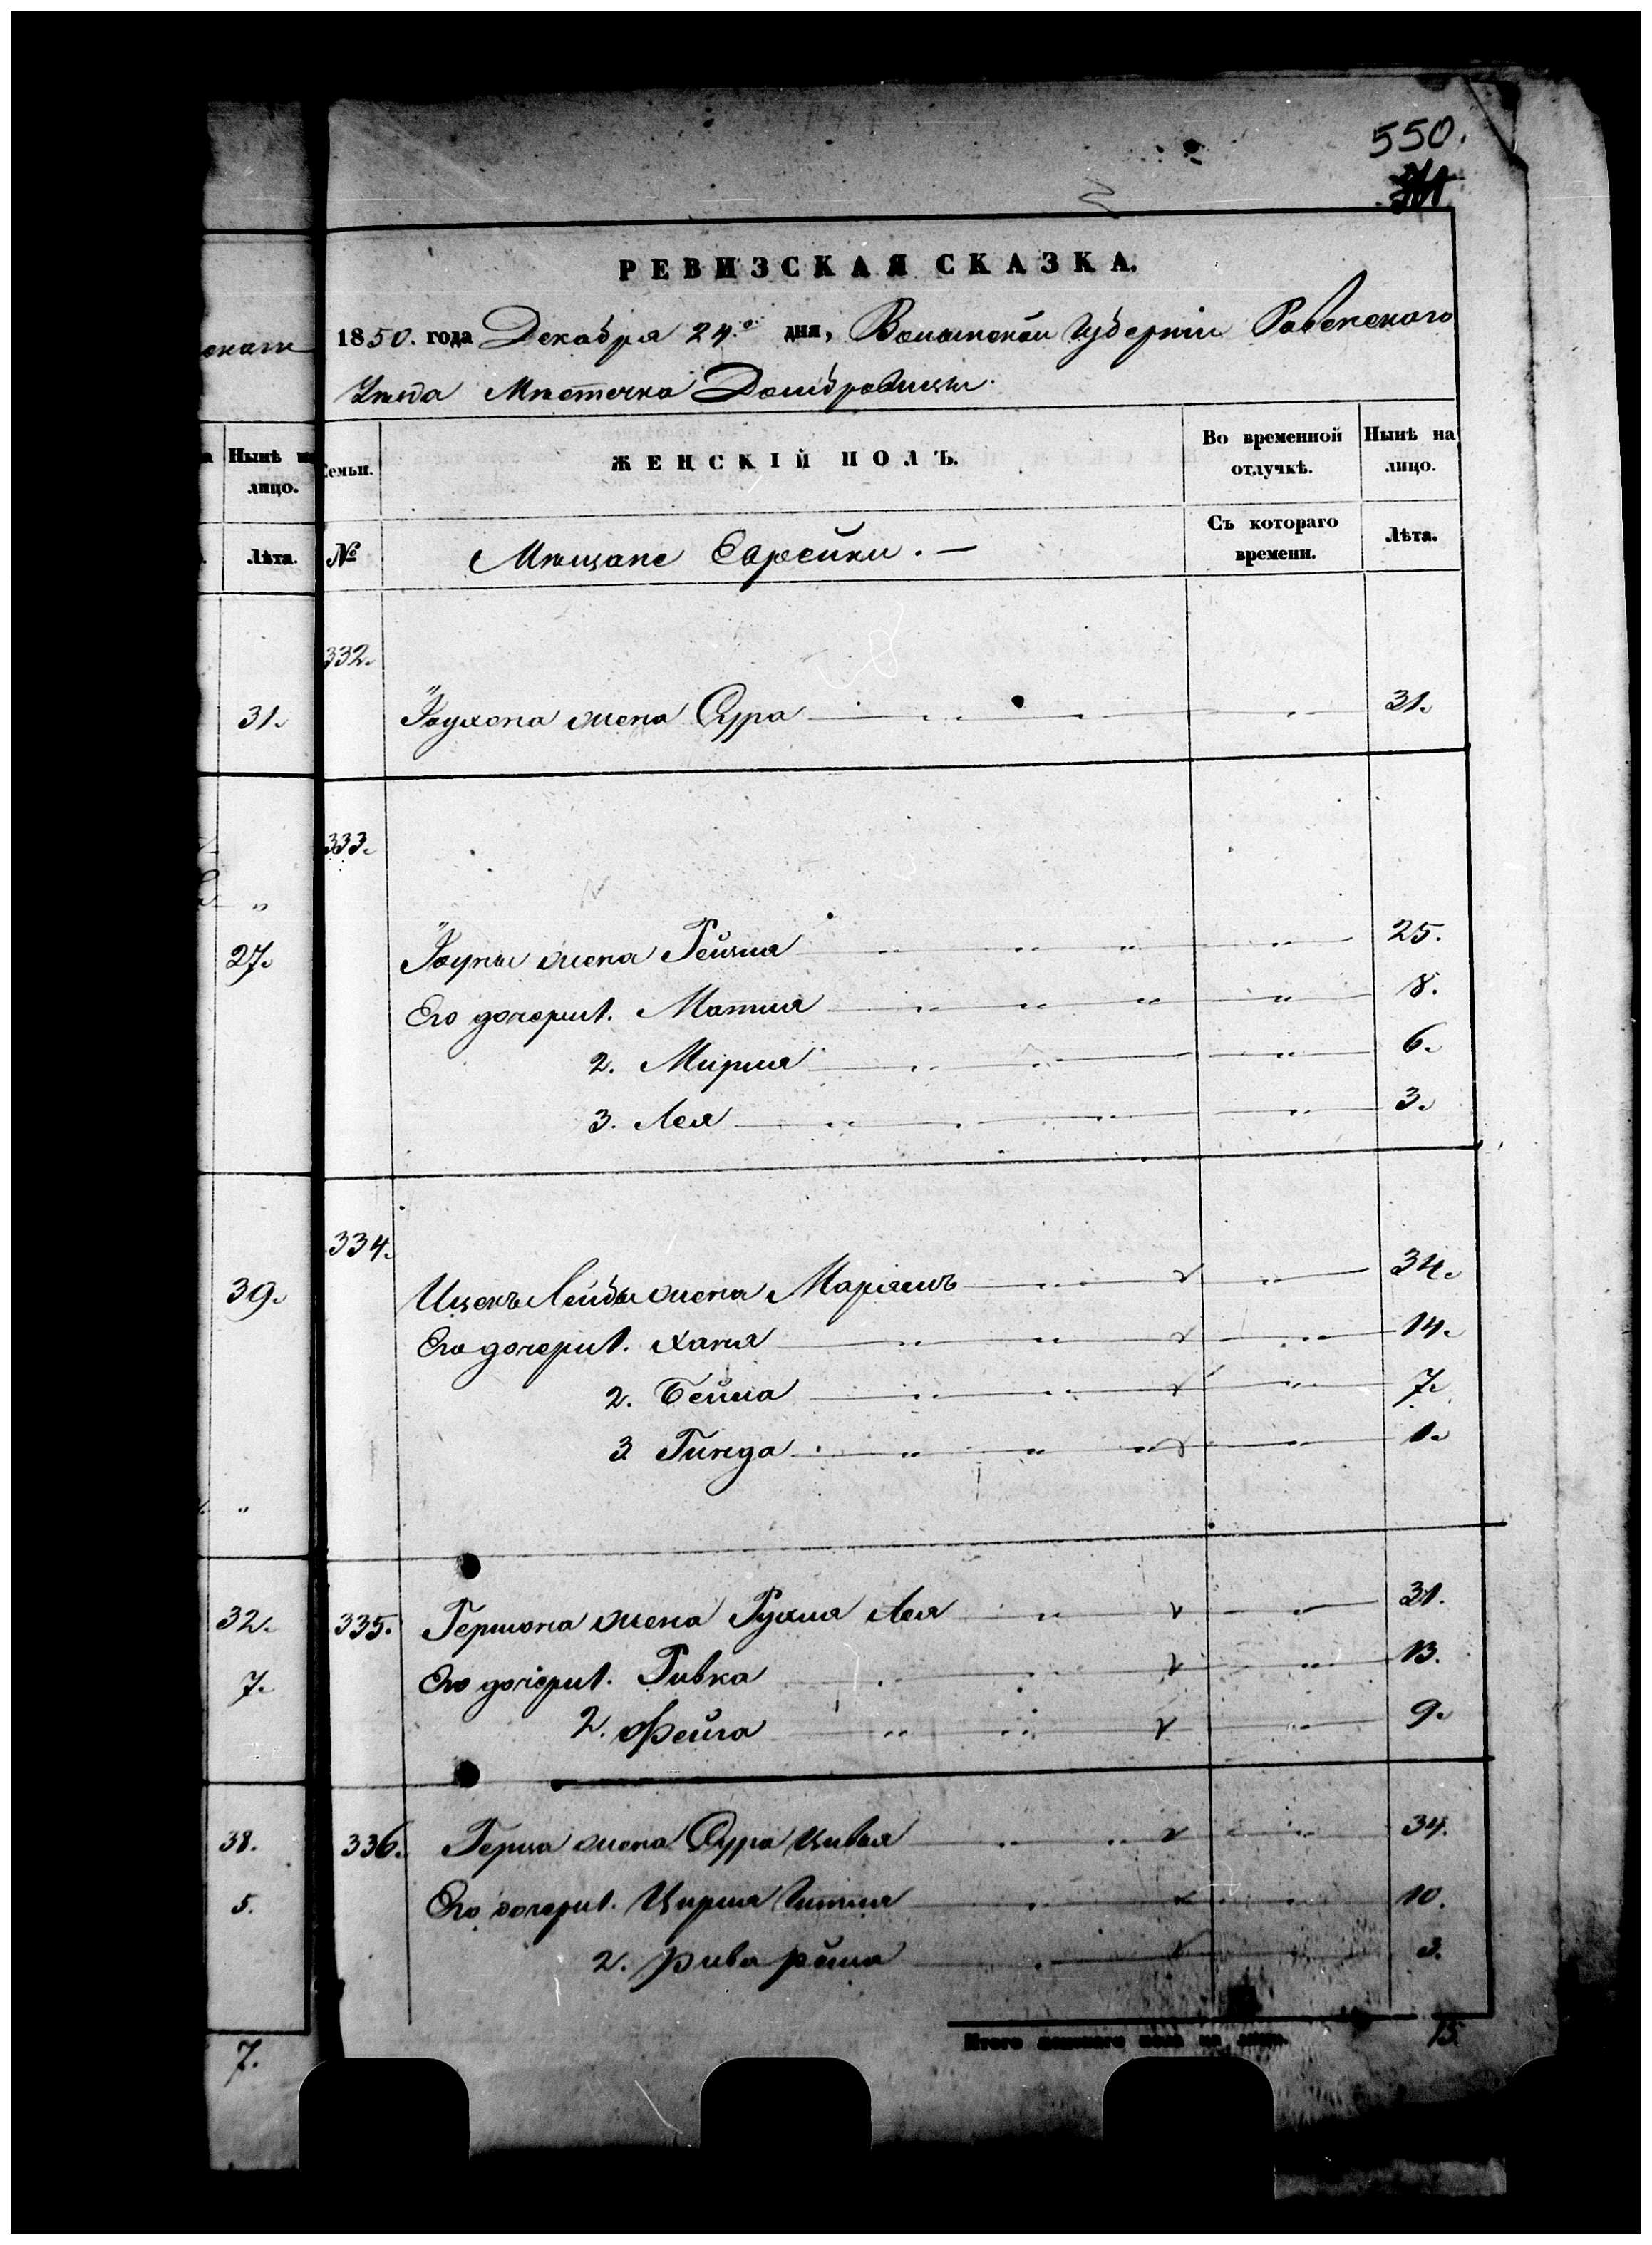 550.
РЕВИЗСКАЯ СКАЗКА.
1850. года Декабря 24.го дня, Волынской Губерніи Ровенского
Уѣзда Мѣстечка Домбровицы.
скаго
Нынѣ на лицо.
Лѣта.
31.
"
27.
39.
"
32.
7.
38.
5.
7.
Семьи.
ЖЕНСКІЙ ПОЛЪ.
Во временной отлучкѣ.
Нынѣ на лицо.
№
Мѣщане Еврейки. —
Съ котораго времени.
Лѣта.
332.
жена Сура — " — " — " — 31.
333.
жена Рейзля — " — " — " — " — 25.
Его дочери 1. Матля — " — " — " — " — 8.
2. Мирля — " — " — " — 6.
3. Лея — " — " — " — " — 3.
334.
Ицекъ Лейбы жена Маріямъ — " — " — 34.
Его дочери 1. Ханя — " — " — " — 14.
2. Бейла — " — " — " — 7.
3 Гинда — " — " — " — " — 1.
335. Гершона жена Рухля Лея — " — " — 31.
Его дочери 1. Ривка — " — " — 13.
2. Фейга — " — " — " — 9.
336. Герша жена Сура Цивья — " — " — " — 34.
Его дочери 1. Цирля Гитля — " — " — 10.
2. Рива Рейза — " — 3.
Итого женскаго пола на лицо. 15